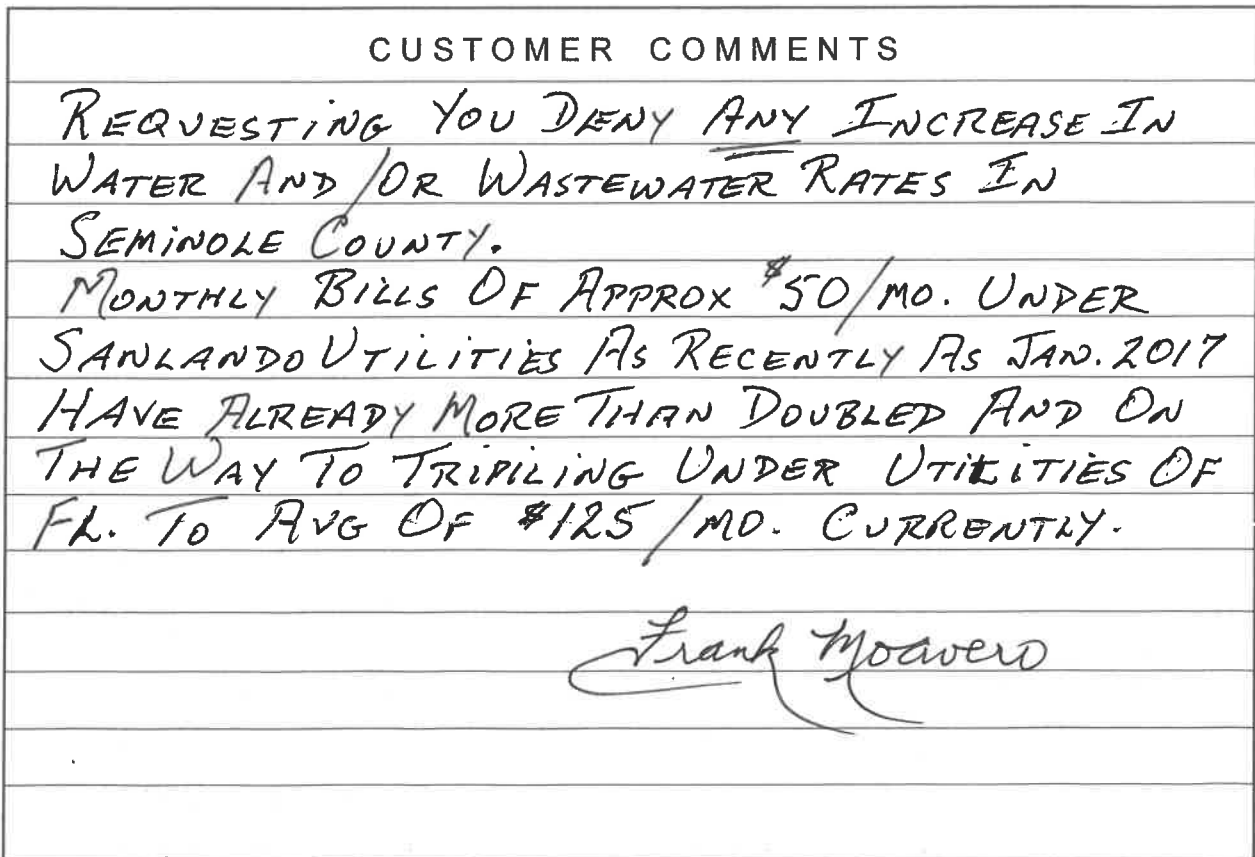 CUSTOMER COMMENTS
REQUESTING YOU DENY ANY INCREASE IN
WATER AND/OR WASTEWATER RATES IN
SEMINOLE COUNTY.
MONTHLY BILLS OF APPROX $50/MO. UNDER
SANLANDO UTILITIES AS RECENTLY AS JAN. 2017
HAVE ALREADY MORE THAN DOUBLED AND ON
THE WAY TO TRIPILING UNDER UTILITIES OF
FL. TO AVG OF $125/MO. CURRENTLY.
Frank Moavero